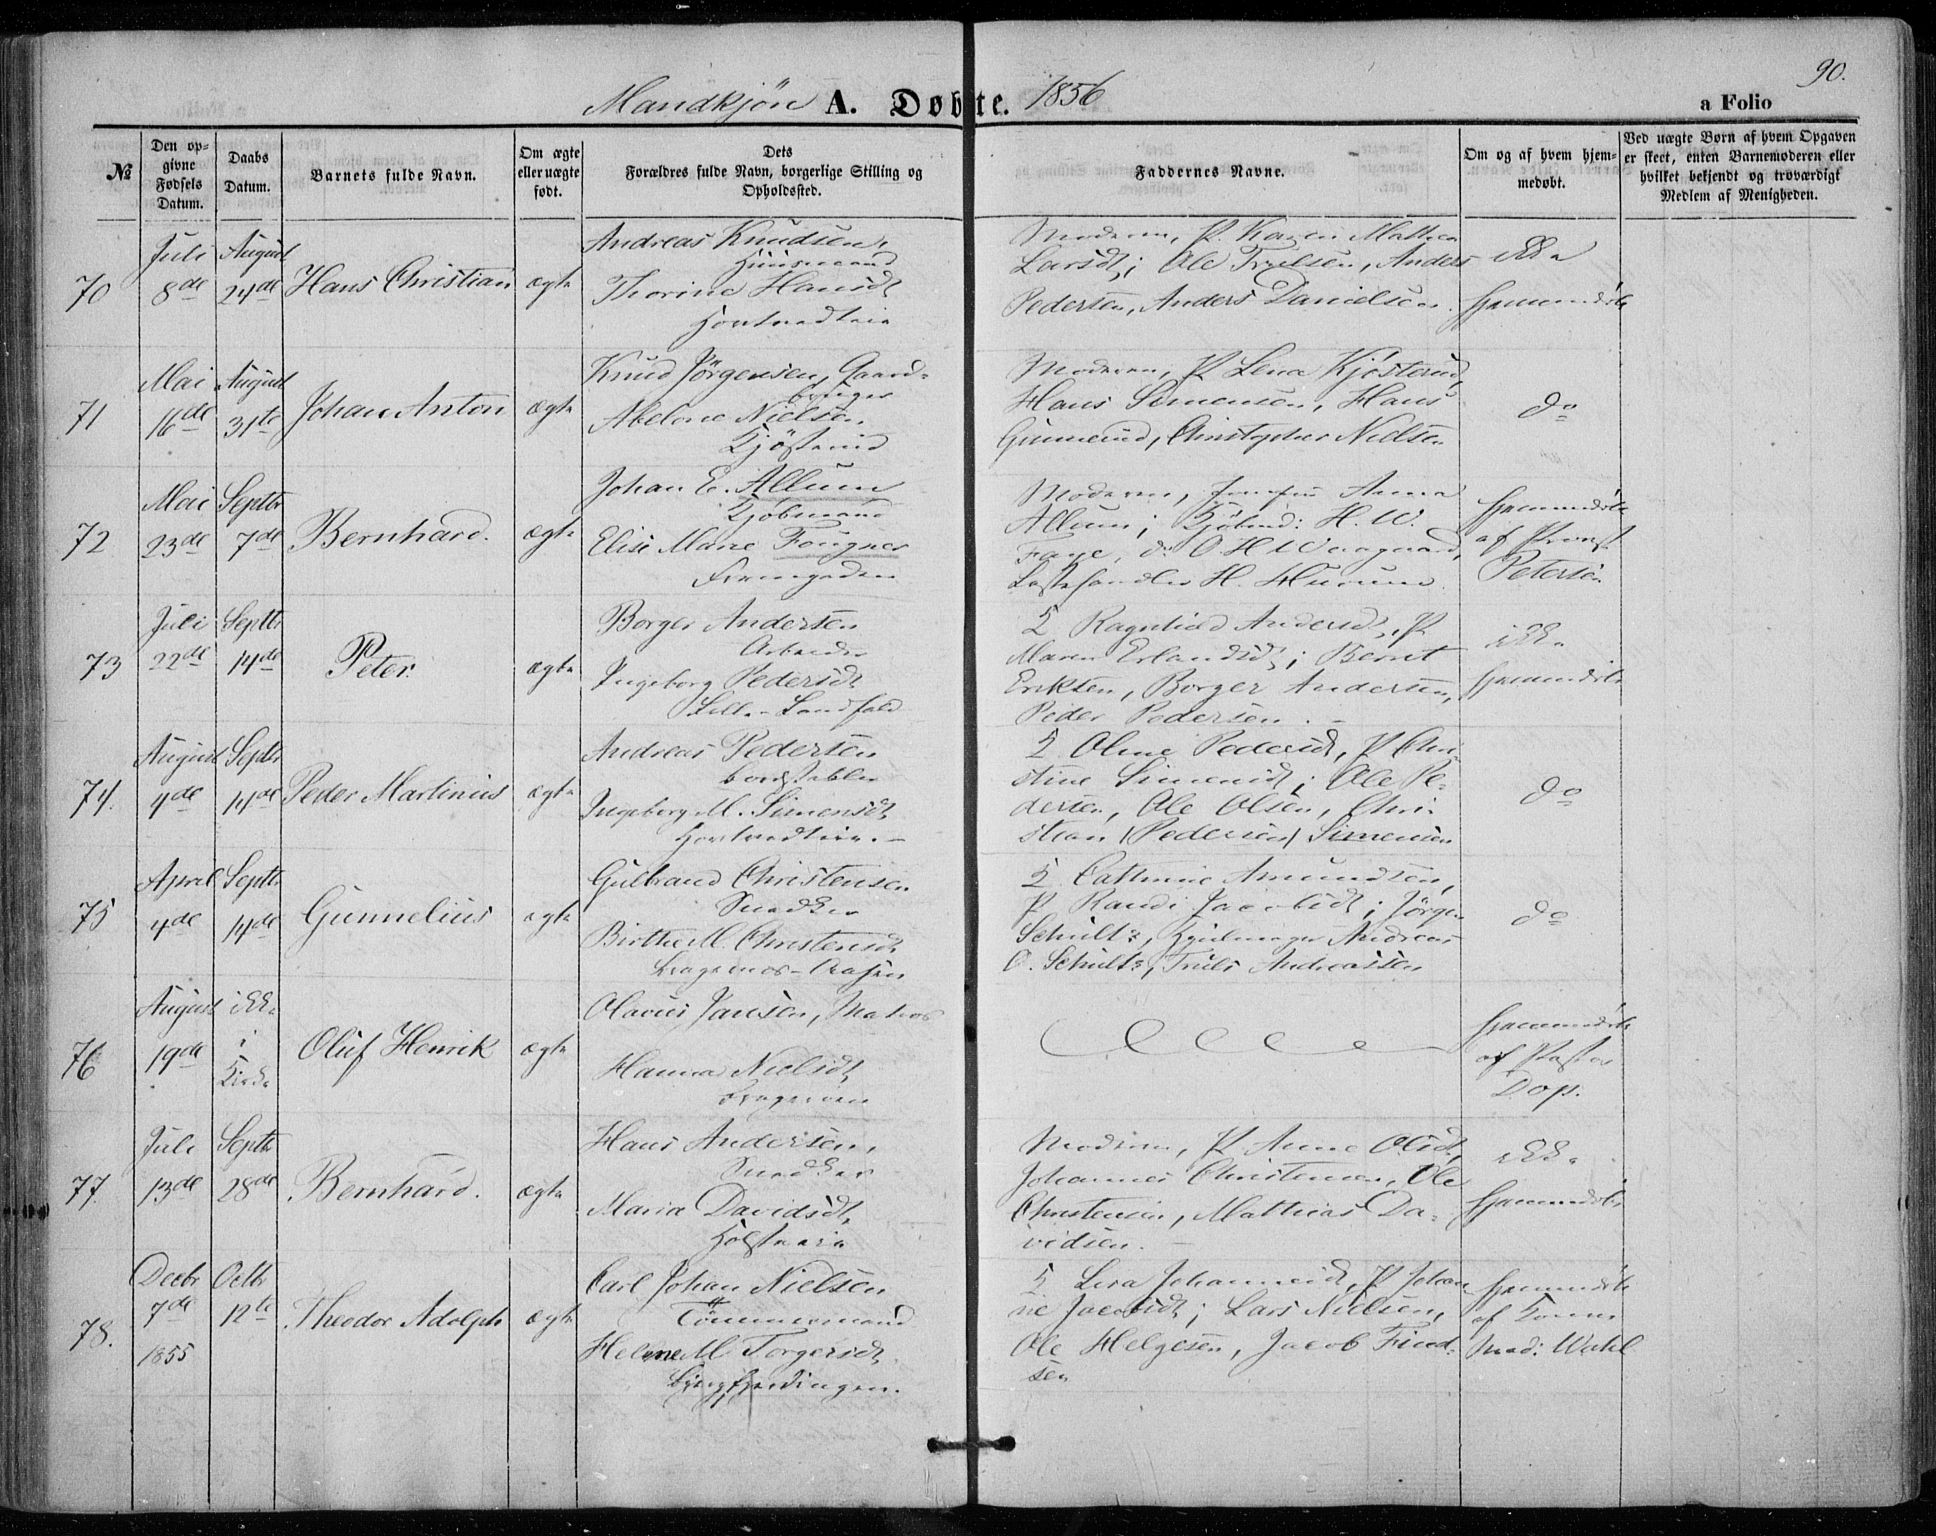 90.
Mandkjön A. Døbte. 1856
a Folio
No
Den op-
givne
Fødsels
Datum.
Daabs
Datum.
Barnets fulde Navn.
Om ægte
eller uægte
født.
Dets
Forældres fulde Navn, borgerlige Stilling og
Opholdssted.
Faddernes Navne.
Om og af hvem hjem-
medøbt.
Ved uægte Børn af hvem Opgaven
er skeet, enten Barnemoderen eller
hvilket bekjendt og troværdigt
Medlem af Menigheden.
70
Juli
8de
August
24de
Hans Christian
ægte
Andreas Knudsen,
Huusmand
Thorine Hansdt
Moderen, P. Karen Mathea
Larsdt; Ole Truelsen, Anders
Pedersen, Anders Danielsen.
ikke
hjemmedöbt
71
Mai
16de
August
31te
Johan Anton
ægte
Knud Jørgensen, Gaard-
bruger
Abelone Nielsen
Kjøsterud
Moderen, P Lena Kjösterud,
Hans Simensen, Hans
Gunnerud, Christopher Nielsen
do
72
Mai
23de
Septbr
7de
Bernhard.
ægte
Johan E. Allum
Kjöbmand
Elise Marie Fougner
Moderen, Jomfru Anna
Allum; Kjöbmd: H. W.
Faye, do O. H.
H. Murum
hjemmedöbt
af Provst
Petersen
73
Juli
22de
Septbr
14de
Peter.
ægte
Borger Andersen
Arbeider
Ingeborg Pedersdt
Lille-Landfald
Ragnhild Andersd, P
Maren Erlandsdt; Bernt
Eriksen, Borger Andersen,
Peder Pedersen. -
ikke
hjemmedöbt
74.
August
4de
Septbr
14de
Peder Martinius
ægte
Andreas Pedersen
Ingeborg M. Simensdt
Oline Pedersdt, P Chri-
stine Simensdt; Ole Pe-
dersen, Ole Olsen, Chri-
stian (Pedersen) Simensen
do
75
April
4de
Septbr
14de
Gunnelius
ægte
Gulbrand Christensen
Snedker
Birthe M. Christensdt
Bragernes-Aasen
Cathrine Amundsen,
P Randi Jacobsdt; Jørgen
Schultz, Hjulmager Andreas
O. Schultz, Truls Andreassen
do
76
August
19de
ikke
i
Kirke
Oluf Henrik
ægte
Olavus Jansen, Matros
Hanna Nielsdt
hjemmedöbt
af Pastor
Dop.
77.
Juli
13de
Septbr
28de
Bernhard.
ægte
Hans Andersen,
Snedker
Maria Davidsdt,
Moderen, P Anne Olsdt,
Johannes Christensen, Ole
Christensen, Mathias Da-
vidsen. -
ikke
hjemmedöbt
78.
Decbr
7de
1855
Octbr
12te
Theodor Adolph
ægte
Carl Johan Nielsen
Tömmermand
Helene M Torgersdt
Lisa Johannesdt, P Johan-
ne Jacobsdt; Lars Nielsen,
Ole Helgesen, Jacob Fiud-
sen
hjemmedöbt
af
mad: Wahl